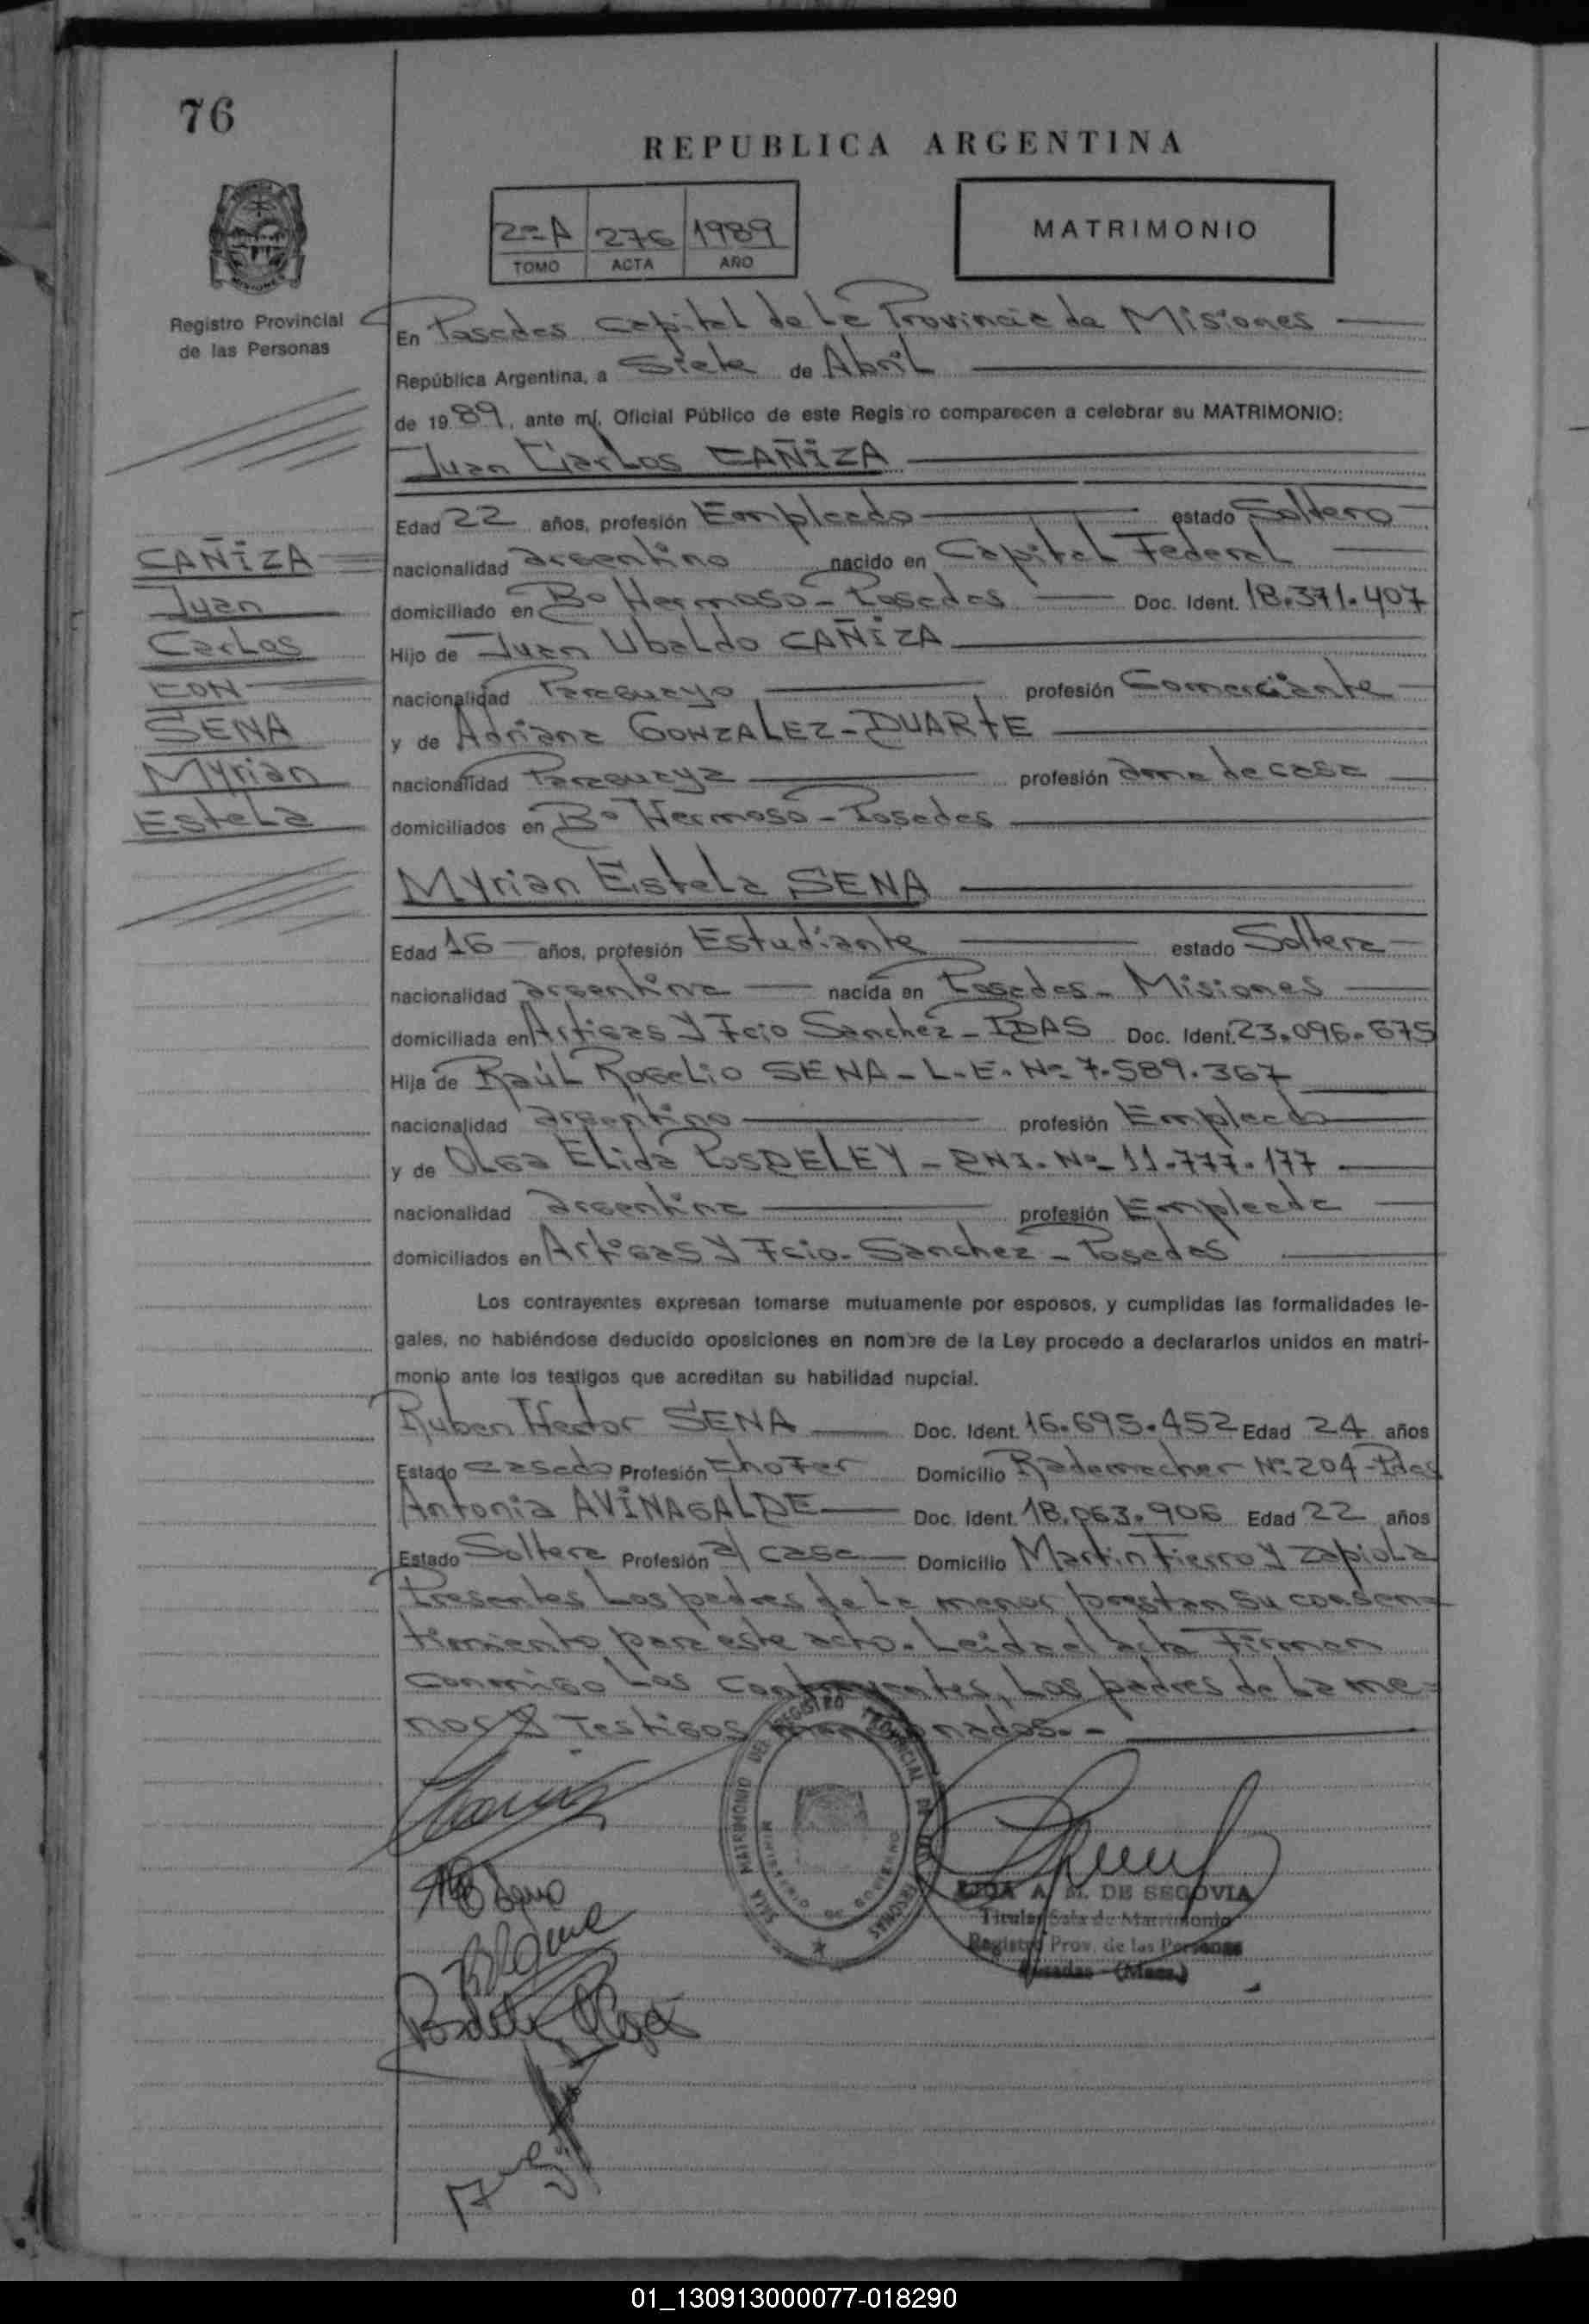 76
REPUBLICA ARGENTINA
2=A 276 1989
TOMO ACTA AÑO
MATRIMONIO
Registro Provincial
de las Personas
En Posadas Capital de la Provincia de Misiones
República Argentina, a Siete de Abril
de 1989, ante mí, Oficial Público de este Registro comparecen a celebrar su MATRIMONIO:
Juan Carlos CAÑIZA
Edad 22 años, profesión Empleado estado Soltero
nacionalidad argentino nacido en Capital Federal
domiciliado en Bº Hermoso - Posadas Doc. Ident. 18.371.407
Hijo de Juan Ubaldo CAÑIZA
nacionalidad Paraguayo profesión Comerciante
y de Adriana GONZALEZ - DUARTE
nacionalidad Paraguaya profesión ama de casa
domiciliados en Bº Hermoso - Posadas
CAÑIZA
Juan
Carlos
CON
SENA
Myrian
Estela
Myrian Estela SENA
Edad 16 años, profesión Estudiante estado Soltera
nacionalidad argentina nacida en Posadas - Misiones
domiciliada en Artigas y Fcio Sanchez - PDAS Doc. Ident. 23.096.675
Hija de Raúl Rogelio SENA - L.E. Nº 7.589.367
nacionalidad argentino profesión Empleado
y de Olga Elida POSDELEY - DNI. Nº 11.777.177
nacionalidad argentina profesión Empleada
domiciliados en Artigas y Fcio. Sanchez - Posadas
Los contrayentes expresan tomarse mutuamente por esposos, y cumplidas las formalidades le-
gales, no habiéndose deducido oposiciones en nombre de la Ley procedo a declararlos unidos en matri-
monio ante los testigos que acreditan su habilidad nupcial.
Ruben Hector SENA Doc. Ident. 16.695.452 Edad 24 años
Estado casado Profesión chofer Domicilio Rademacher Nº 204 - Pdas
Antonia AVINAGALDE Doc. Ident. 18.063.906 Edad 22 años
Estado Soltera Profesión a/ casa Domicilio Martin Fierro y Zapiola
Presentes los padres de la menor prestan su consen=
timiento para este acto. Leida el acta Firman
conmigo los contrayentes, los padres de la me=
nor y Testigos mencionados.-
SALA MATRIMONIO DEL REGISTRO PROVINCIAL DE LAS PERSONAS
MINISTERIO DE GOBIERNO
LIDA A. M. DE SEGOVIA
Titular Sala de Matrimonio
Registro Prov. de las Personas
Posadas - (Mnes.)
01_130913000077-018290